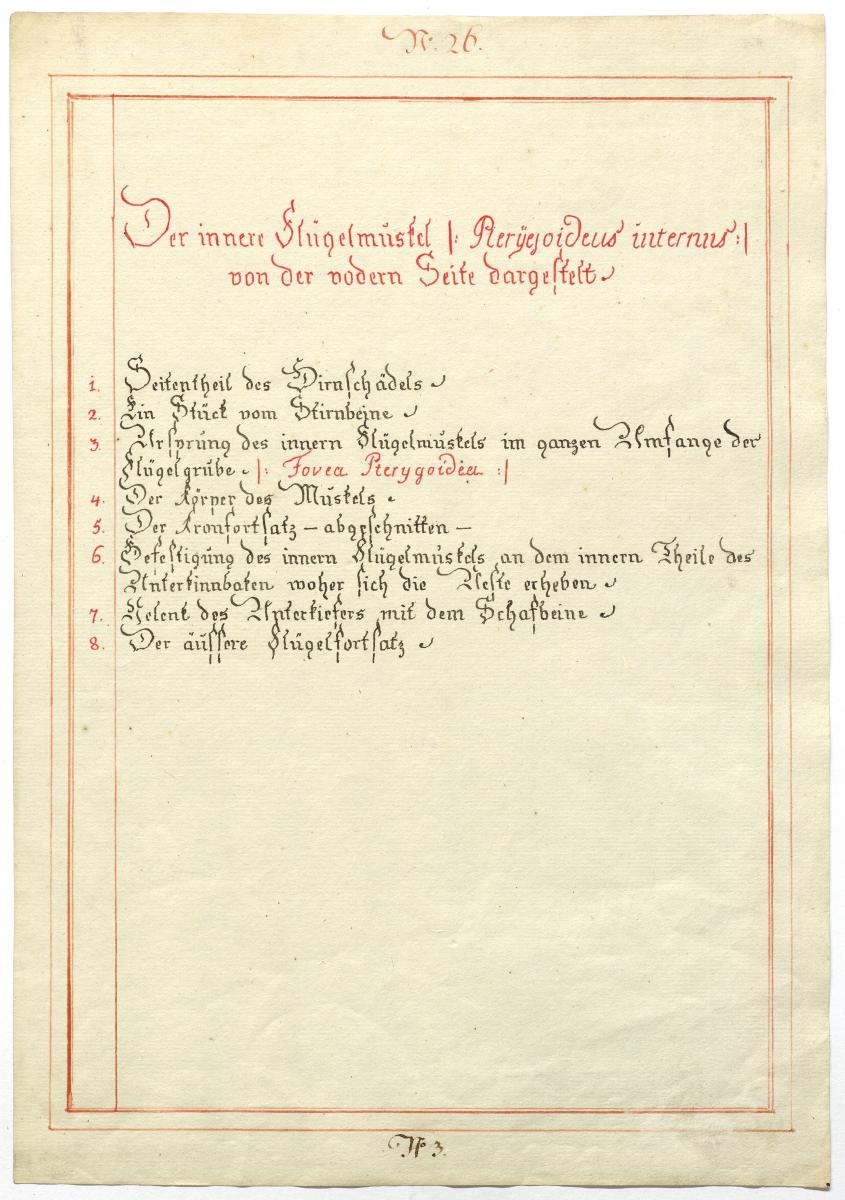 Nr. 26.
Der innere Flügelmuskel |: Pterÿgoideus internus :|
von der vodern Seite dargestelt.
1. Seitentheil des Hirnschädels.
2. Ein Stück vom Stirnbeine.
3. Ursprung des innern Flügelmuskels im ganzen Umfange der
Flügelgrube. |: Fovea Pterygoidéa :|
4. Der Körper des Muskels.
5. Der Kronfortsatz – abgeschnitten –
6. Befestigung des innern Flügelmuskels an dem innern Theile des
Unterkinnbaken woher sich die Aeste erheben.
7. Gelenk des Unterkiefers mit dem Schafbeine.
8. Der äussere Flügelfortsatz.
No 3.